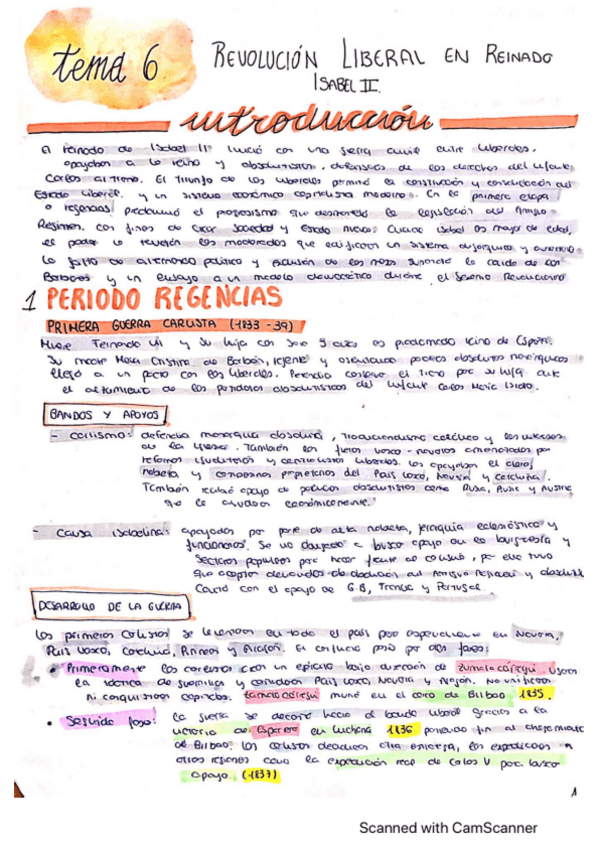 tema 6
REVOLUCIÓN LIBERAL EN REINADO
ISABEL II.
introducción
El reinado de Isabel II inició con una guerra civil entre liberales,
apoyaban a la reina y absolutistas, defensores de los derechos del infante
Carlos al trono. El triunfo de los liberales permitió la construcción y consolidación del
Estado liberal, y un sistema económico capitalista moderno. En la primera etapa
o regencias predominó el progresismo que desmanteló la legislación del Antiguo
Régimen, con fines de crear sociedad y Estado nuevos. Cuando Isabel es mayor de edad,
el poder lo los moderados que edificaron un sistema y
la falta de alternancia política y exclusión de los la caída de los
Borbones y un ensayo a un modelo democrático durante el Sexenio Revolucionario
1 PERIODO REGENCIAS
PRIMERA GUERRA CARLISTA (1833-39)
Muere Fernando VII y su hija con solo 3 años es proclamada reina de España.
Su madre María Cristina de Borbón, regente y poderes absolutos monárquicos
llegó a un pacto con los liberales. Pretendía conservar el trono por su hija ante
el alzamiento de los partidarios absolutistas del infante Carlos María Isidro.
BANDOS Y APOYOS
- carlismo: defendía monarquía absoluta, tradicionalismo católico y los intereses
de la iglesia. También los fueros vasco-navarros amenazados por
reformas igualitarias y centralistas liberales. Los apoyaban el clero,
nobleza y campesinos propietarios del País Vasco, Navarra y Cataluña.
También recibió apoyo de potencias absolutistas como Rusia, Prusia y Austria
que le ayudaron económicamente.
- Causa isabelina: apoyados por parte de alta nobleza, jerarquía eclesiástica y
funcionarios. Se vio obligada a buscar apoyo en la burguesía y
sectores populares para hacer frente al carlismo, por ello tuvo
que aceptar demandas de abolición del Antiguo Régimen y absolutismo
Contó con el apoyo de G.B, Francia y Portugal.
DESARROLLO DE LA GUERRA
Los primeros carlistas se levantan en todo el país pero especialmente en Navarra,
País Vasco, Cataluña, Pirineos y Aragón. El conflicto pasó por dos fases:
• Primeramente los carlistas crean un ejército bajo dirección de Zumalacárregui. Usaron
la técnica de guerrillas y controlaron País Vasco, Navarra y Aragón. No unificaron
ni conquistaron capitales. Zumalacárregui murió en el cerco de Bilbao 1835.
• Segunda fase: la guerra se decantó hacia el bando liberal gracias a la
victoria de Espartero en Luchana 1836 poniendo fin al
de Bilbao. Los carlistas deciden otra estrategia, las expediciones a
otras regiones como la expedición real de Carlos V para buscar
apoyo. (1837)
1
Scanned with CamScanner